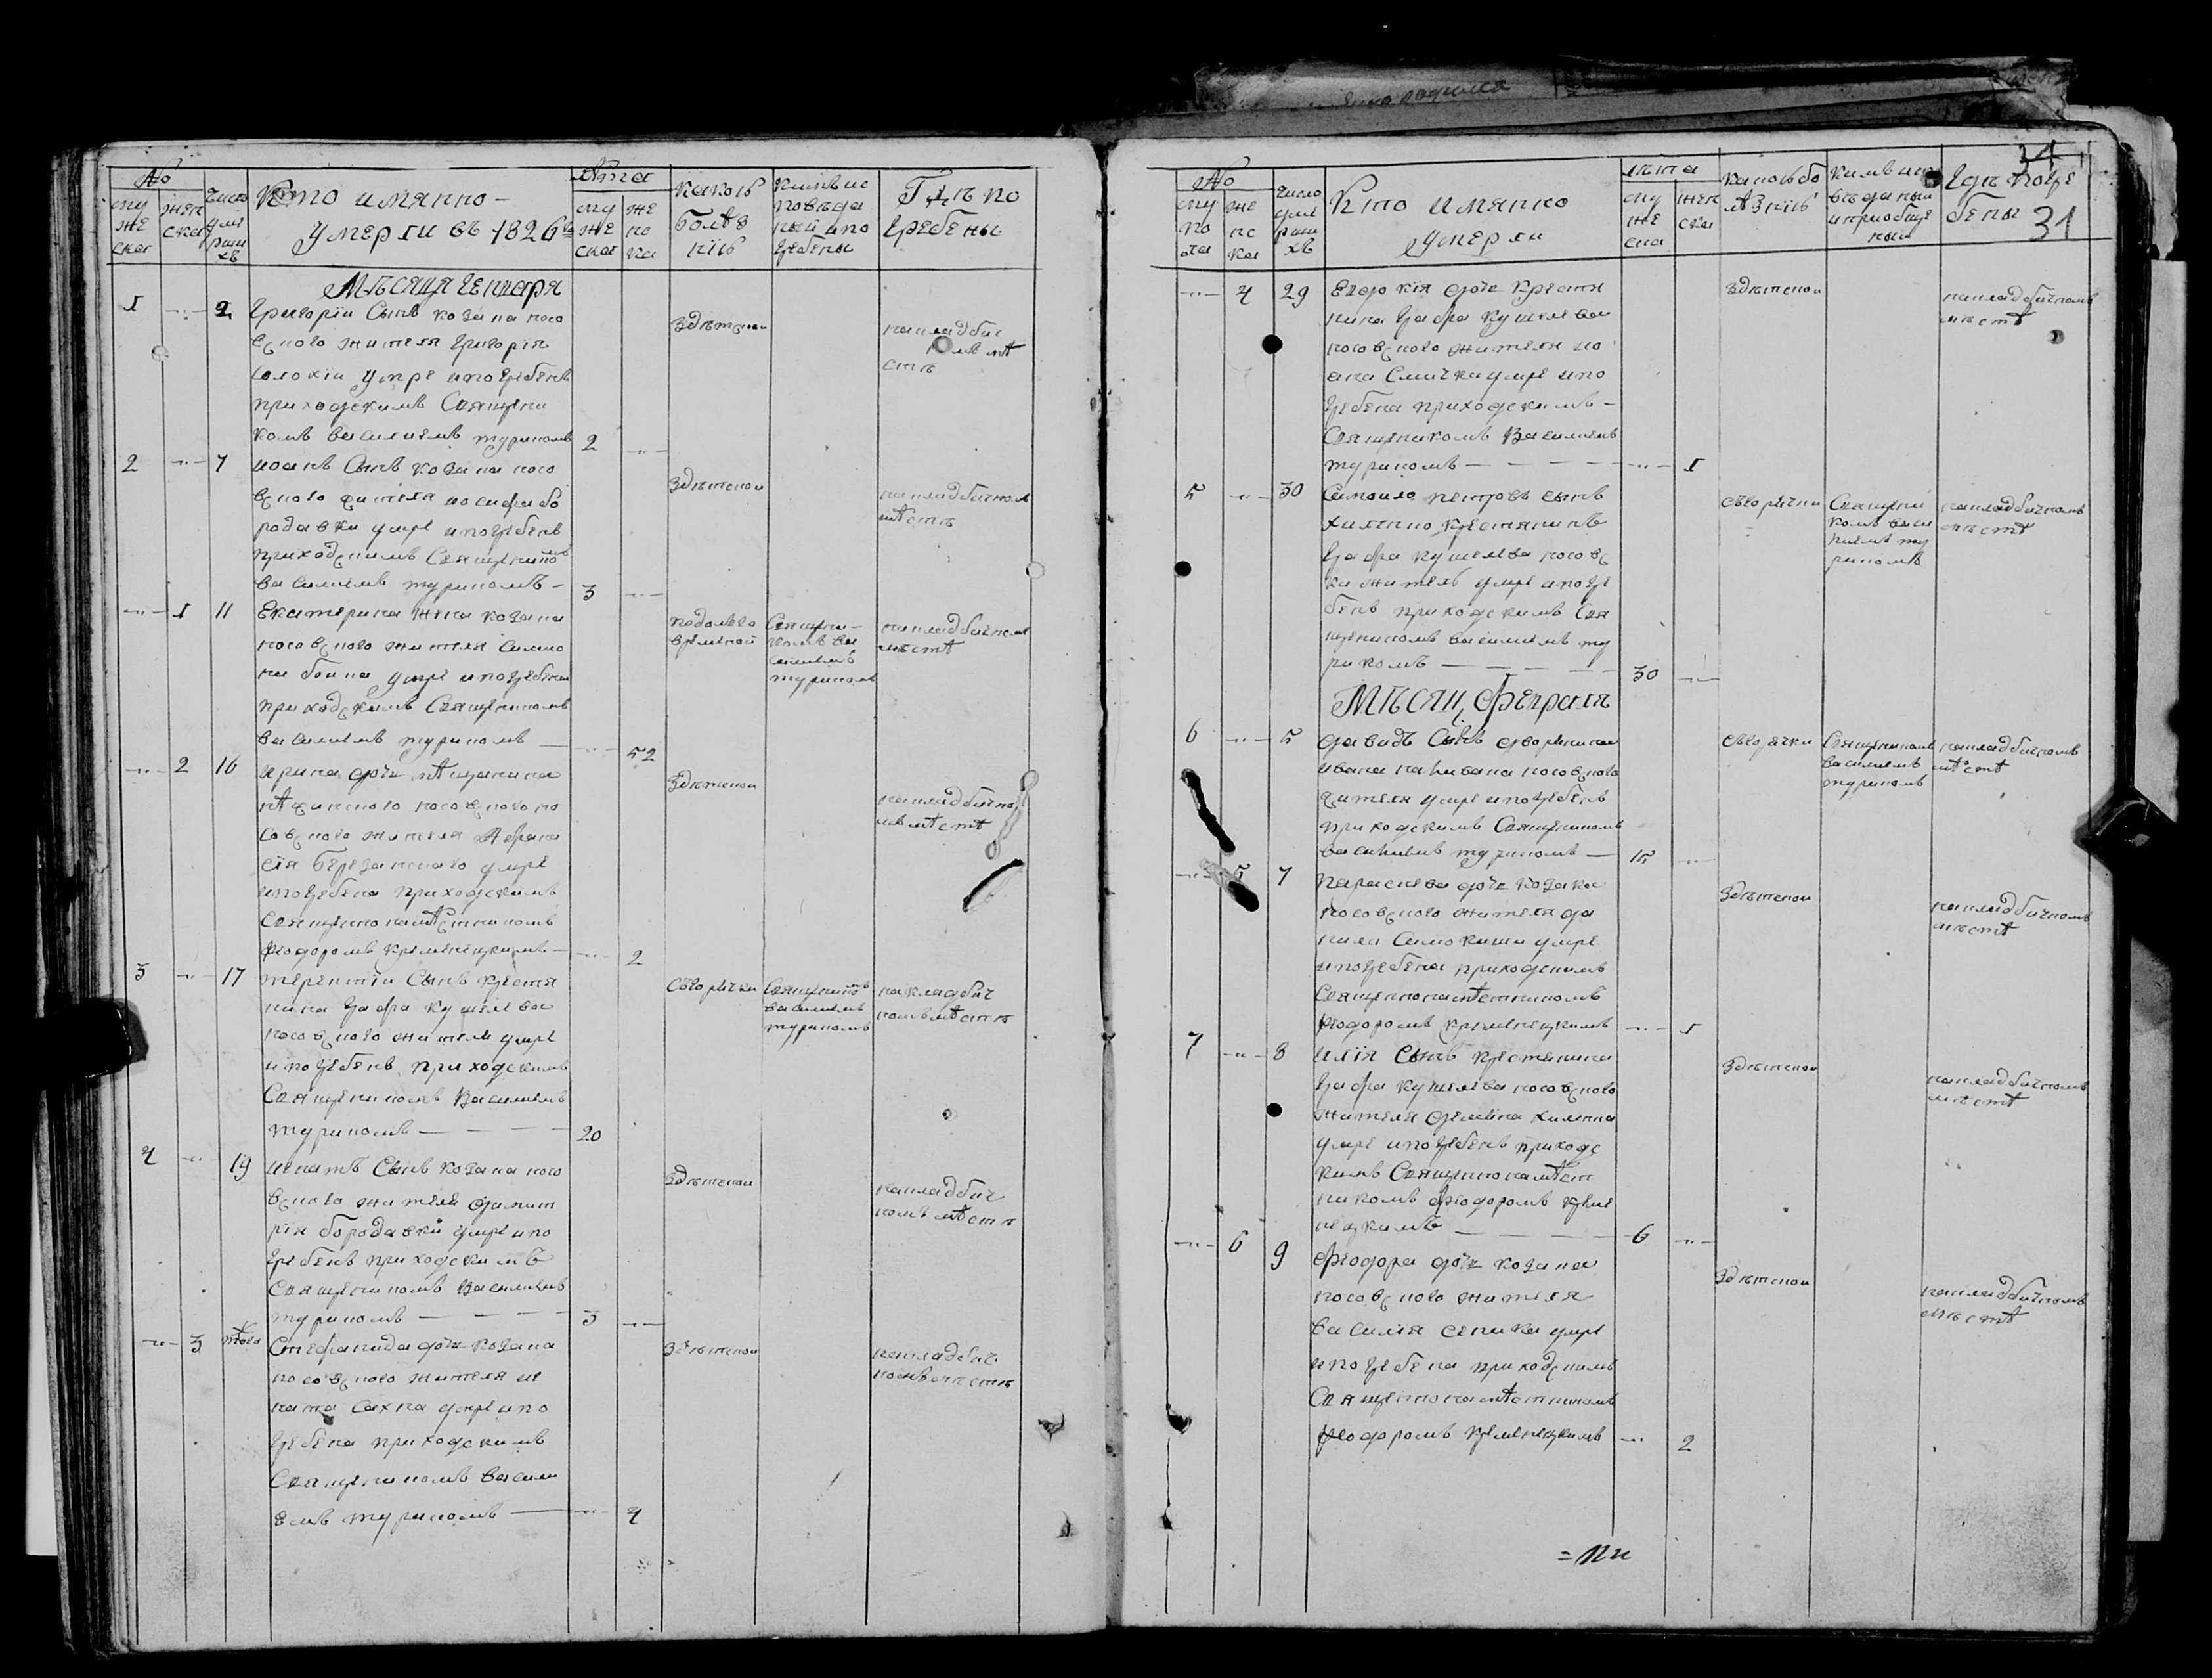 №
му
же
ска
жен
ска
число
умер
ших
Кто имянно
умерли въ 1826 го
лѣта
му
же
ска
же
нс
ка
какою
болѣз
нію
кимъ ис
повѣда
ный и по
гребены
Гдѣ по
гребены
Мѣсяця Генваря
1 2
Григорій Сынъ козака носо
вского жителя Григорія
умре и погребенъ
приходскимъ Священи
комъ василиемъ туриком 2
здѣтской
на кладбич
номъ мѣ
стѣ
2 7
иоанъ Сынъ козака носо
вского жителя иосифа бо
родавки умре и погребенъ
приходскимъ Священико
василиемъ турикомъ 3
здѣтской
на кладбичном
мѣстѣ
1 11
Екатерина жена козака
носовского жителя Симо
на боика умре и погребена
приходскимъ Священикомъ
василиемъ турикомъ 52
Священи
комъ ва
силиемъ
турикомъ
на кладбичном
мѣстѣ
2 16
ирина дочь мѣщанина
нѣжинского носовского но
совского жителя Афана
сія Березанского умре
и погребена приходскимъ
Священнонамѣстникомъ
феодоромъ Кременецкимъ 2
здѣтской
на кладбично
мъ мѣстѣ
3 17
терентій Сынъ крестя
нина Графа кушелева
носовского жители умре
и погребенъ приходскимъ
Священикомъ Василиемъ
турикомъ 20
сгорячки
Священико
василиемъ
турикомъ
на кладбич
номъ мѣстѣ
4 19
игнатъ Сынъ козака носо
вского жителя димит
рія бородавки умре и по
гребенъ приходскимъ
Священикомъ Василиемъ
турикомъ 3
здѣтской
на кладбич
номъ мѣстѣ
3 того
Стефанида дочь козака
носовского жителя иг
ната Сахна умре и по
гребена приходскимъ
Священикомъ васили
емъ турикомъ 4
здѣтской
на кладбич
номъ мѣстѣ
34
31
№
му
же
нс
ка
число
умер
ших
Кто имянно
умерли
лѣта
му
же
ска
жен
ска
какою бо
лѣзнію
кимъ исп
вѣданый
и приобще
ный
Гдѣ погре
бены
4 29
дочь Крестя
нина Графа кушелева
носовского жителя ио
ана Смички умре и по
гребена приходскимъ
Священикомъ Василиемъ
турикомъ 1
здѣтской
на кладбичномъ
мѣстѣ
5 30
Самоило петровъ сынъ
хименко крестянинъ
Графа кушелева носовс
ки житель умре и погре
бенъ приходскимъ Свя
щеникомъ василиемъ ту
рикомъ 30
сгорячки
Священи
комъ васи
лиемъ ту
рикомъ
на кладбичномъ
мѣстѣ
Мѣсяц, Февраля
6 5
давидъ Сынъ дворянина
ивана носовского
жителя умре и погребенъ
приходскимъ Священикомъ
василиемъ турикомъ 15
сгорячки
Священикомъ
василиемъ
турикомъ
на кладбичномъ
мѣстѣ
5 7
Параскева дочь козака
носовского жителя да
нила Самокиши умре
и погребена приходскимъ
Священнонамѣстникомъ
феодоромъ кременецкимъ 1
здѣтской
на кладбичномъ
мѣстѣ
7 8
илія Сынъ крестянина
Графа кушелева носовского
жителя хименка
умре и погребенъ приходс
кимъ Священнонамѣст
никомъ феодоромъ креме
нецкимъ 6
здѣтской
на кладбичномъ
мѣстѣ
6 9
Феодора дочь козака
носовского жителя
василія сеника умре
и погребена приходскимъ
Священнонамѣстникомъ
феодоромъ кременецкимъ 2
здѣтской
на кладбичномъ
мѣстѣ